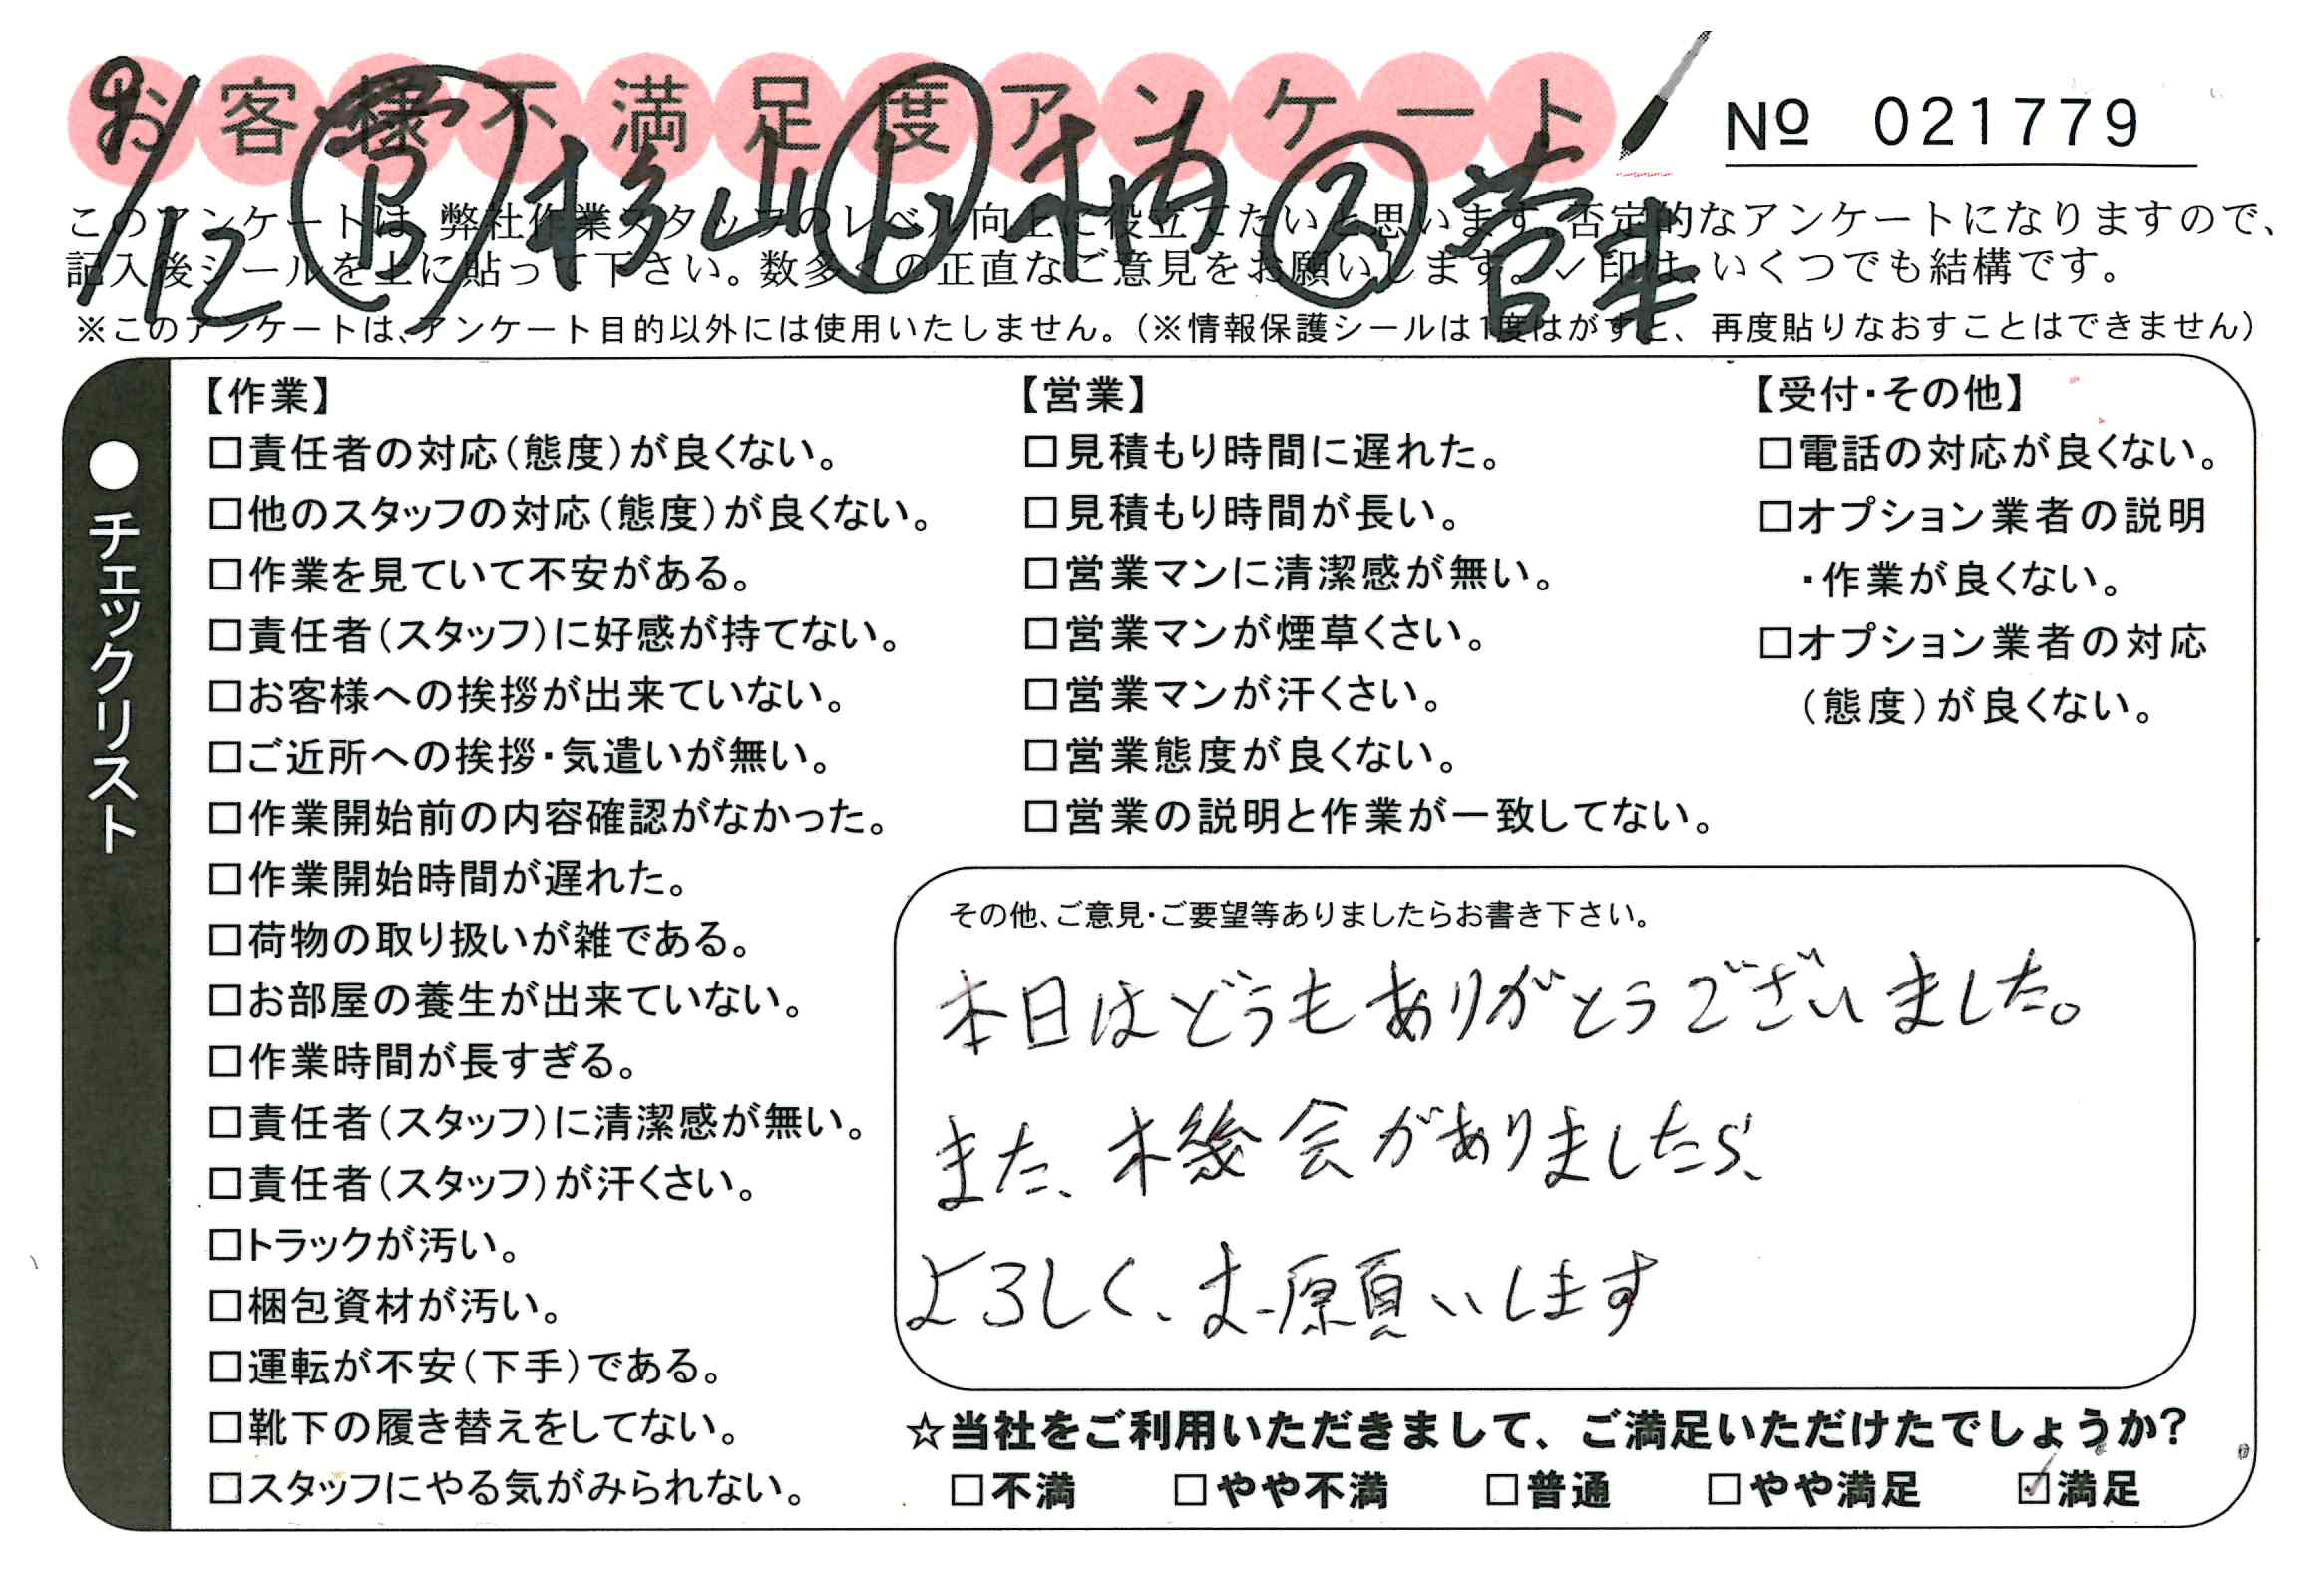 お客様不満足度アンケート
№ 021779
9/12 杉山 柄 2 菅本
このアンケートは、弊社作業スタッフのレベル向上に役立てたいと思います。否定的なアンケートになりますので、
記入後シールを上に貼って下さい。数多くの正直なご意見をお願いします。✓印は、いくつでも結構です。
※このアンケートは、アンケート目的以外には使用いたしません。(※情報保護シールは1度はがすと、再度貼りなおすことはできません)
●チェックリスト
【作業】
□責任者の対応(態度)が良くない。
□他のスタッフの対応(態度)が良くない。
□作業を見ていて不安がある。
□責任者(スタッフ)に好感が持てない。
□お客様への挨拶が出来ていない。
□ご近所への挨拶・気遣いが無い。
□作業開始前の内容確認がなかった。
□作業開始時間が遅れた。
□荷物の取り扱いが雑である。
□お部屋の養生が出来ていない。
□作業時間が長すぎる。
□責任者(スタッフ)に清潔感が無い。
□責任者(スタッフ)が汗くさい。
□トラックが汚い。
□梱包資材が汚い。
□運転が不安(下手)である。
□靴下の履き替えをしてない。
□スタッフにやる気がみられない。
【営業】
□見積もり時間に遅れた。
□見積もり時間が長い。
□営業マンに清潔感が無い。
□営業マンが煙草くさい。
□営業マンが汗くさい。
□営業態度が良くない。
□営業の説明と作業が一致してない。
【受付・その他】
□電話の対応が良くない。
□オプション業者の説明
・作業が良くない。
□オプション業者の対応
(態度)が良くない。
その他、ご意見・ご要望等ありましたらお書き下さい。
本日はどうもありがとうございました。
また、機会がありましたら、
よろしく、お願いします
☆当社をご利用いただきまして、ご満足いただけたでしょうか?
□不満 □やや不満 □普通 □やや満足 ☑満足